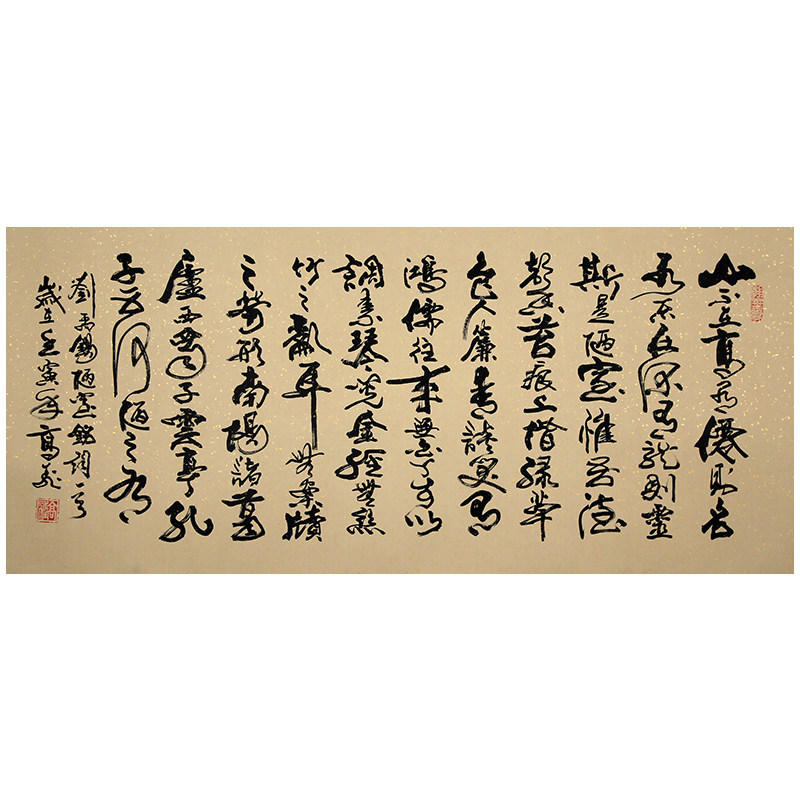 山不在高有僊則名
水不在深有龍則靈
斯是陋室惟吾德
馨苔痕上階緑草
色入簾青談笑有
鴻儒往來無白丁可以
調素琴閱金經無絲
竹之亂耳無案牘
之勞形南陽諸葛
廬西蜀子雲亭孔
子云何陋之有
劉禹錫陋室銘詞一首
歲在壬寅年高